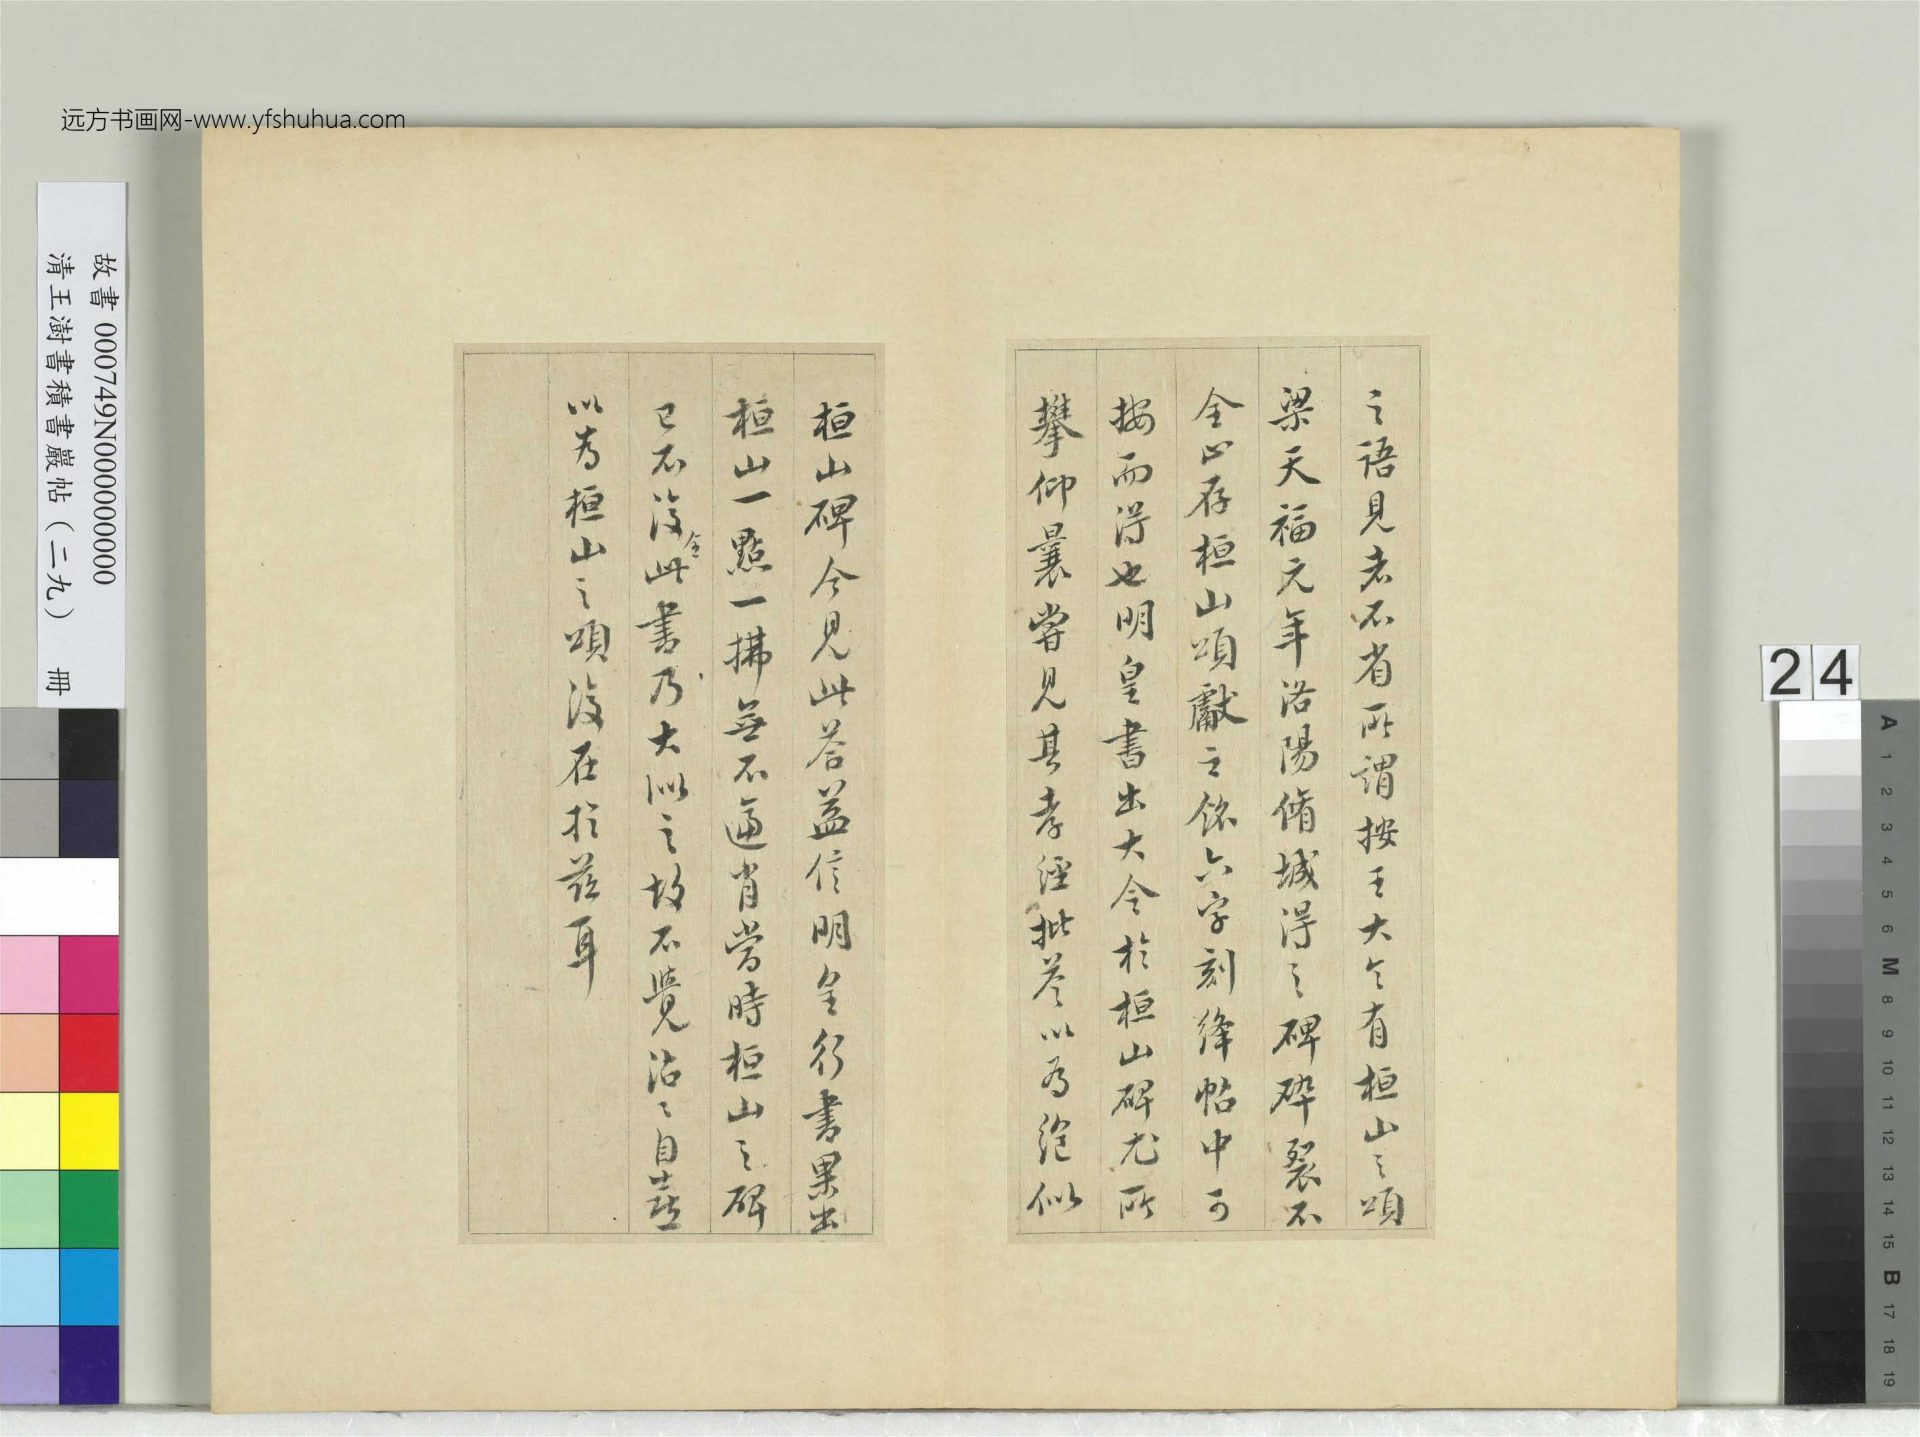 远方书画网-www.yfshuhua.com
故書 000749N000000000
清王澍書積書巖帖（二九） 冊
之語見者不省所謂按王大令有桓山之頌
梁天福元年洛陽脩城得之碑碎裂不
全止存桓山頌獻之銘六字刻絳帖中可
按而得也明皇書出大令於桓山碑尤所
攀仰曩嘗見其孝經批答以為絶似
桓山碑今見此答益信明皇行書果出
桓山一點一拂無不逼肖當時桓山之碑
已不復全此書乃大似之故不覺沾沾自喜
以為桓山之頌復在於茲耳
24
A 1 2 3 4 5 6 M 8 9 10 11 12 13 14 15 B 17 18 19